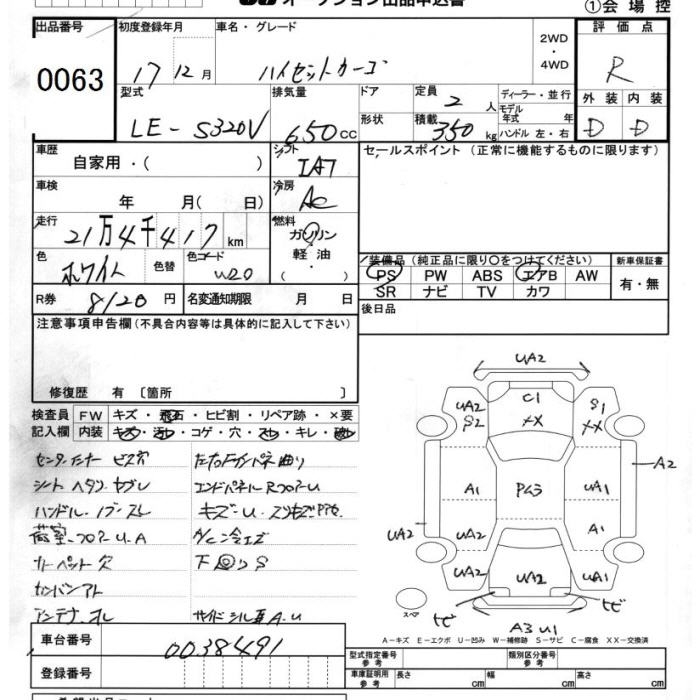 オークション出品申込書
①会場控
出品番号
0063
初度登録年月
17 12月
車名・グレード
ハイゼットカーゴ
2WD
・
4WD
評価点
R
外装 内装
D D
型式
LE-S320V
排気量
650cc
ドア
形状
定員
2人
積載
350kg
ディーラー・並行
モデル年式 年
ハンドル 左・右
車歴
自家用・( )
シフト
IAT
セールスポイント (正常に機能するものに限ります)
車検
年 月( 日)
冷房
AC
走行
21万4千417km
燃料
ガソリン
・
軽油
・
( )
色
ホワイト
色替
色コード
W20
装備品 (純正品に限り〇をつけてください)
PS PW ABS エアB AW
SR ナビ TV カワ
新車保証書
有・無
R券
8120円
名変通知期限 月 日
後日品
注意事項申告欄(不具合内容等は具体的に記入して下さい)
修復歴 有〔箇所 〕
検査員記入欄
FW キズ・飛石・ヒビ割・リペア跡・×要
内装 キズ・汚レ・コゲ・穴・スレ・キレ・破レ
センターインナー ビス穴
シート ヘタリ ヤブレ
ハンドル・ノブ スレ
荷室・フロアーU.A
カーペット欠
アンテナ オレ
エンドパネルRフロアーU
A/C冷エズ
下廻りS
サイドシル下A.U
UA2
C1
XX
UA2
S2
S1
XX
A2
A1
Pムラ
UA1
A1
UA2
UA2
UA2
UA2
UA1
ヒビ
ヒビ
A3 U1
スペア
A−キズ E−エクボ U−凹み W−補修跡 S−サビ C−腐食 XX−交換済
車台番号
0038491
登録番号
型式指定番号 参考
類別区分番号 参考
車庫証明用 参考
長さ cm 幅 cm 高さ cm